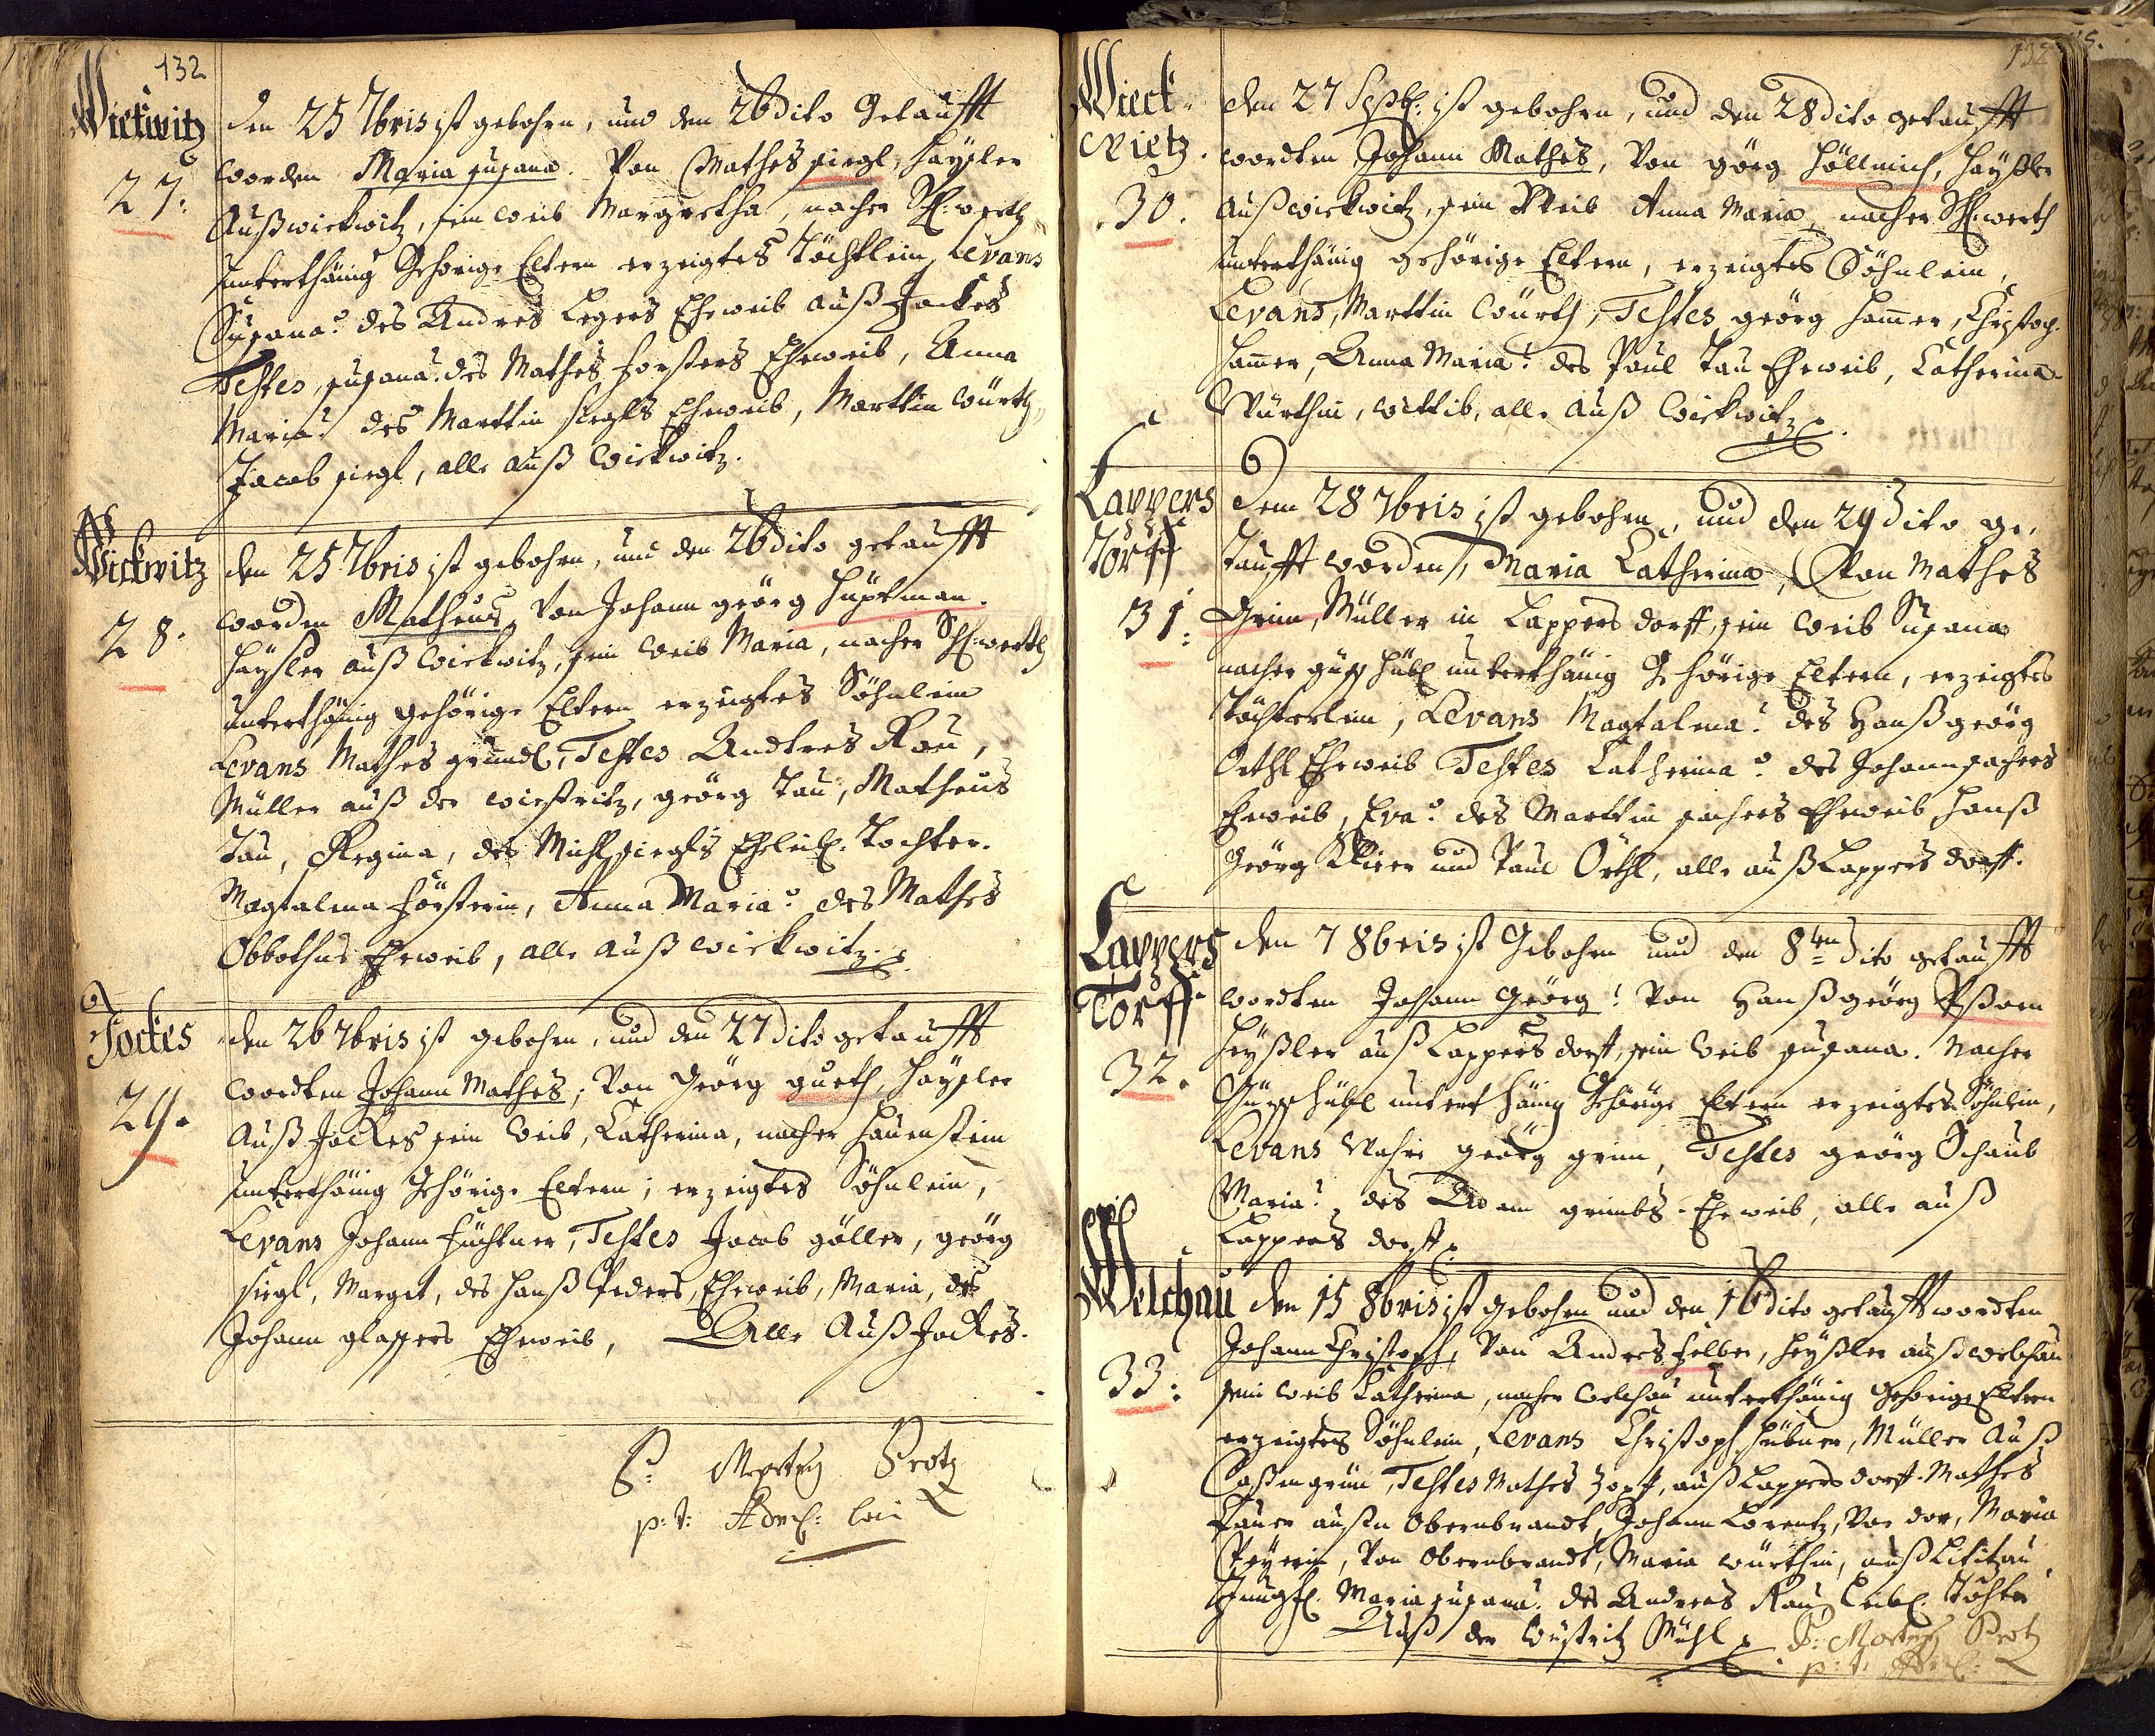 132
Wickwitz
27.
den 25 7bris ist gebohren, und den 26 dito Getaufft
worden Maria susana. Von Mathes siegl, Häysler
Auß wickwitz, sein weib Margretha, nacher Schl:werth
unterthänig Gehörige Eltern erzeigtes Töchtlein, Levans
Susana? des Andres Legers Eheweib auß Jockes
Testes, susana? des Mathes forsters Eheweib, Anna
Maria? des Marttin siegls Eheweib, Marttin würth,
Jacob siegl, alle auß Wickwitz.
Wickwitz
28.
den 25 7bris ist gebohren, und den 26 dito getaufft
worden Matheus, Von Johann georg Hüptman.
Häysler auß Wickwitz, sein Weib Maria, nacher Schl:werth
unterthänig gehörige Eltern erzeigtes Söhnlein
Levans Mathes gründl, Testes Andres Rau,
Müller auß der wiestritz, georg Tau, Matheus
Tau, Regina, des Michl siegls Ehleibl: Tochter.
Magtalena försterin, Anna Maria? des Mathes
Obbothus Eheweib, alle auß wickwitz.
Jockes
29.
den 26 7bris ist gebohren, und den 27 dito getaufft
wordten Johann Mathes; Von Georg gueth, Häysler
Auß Jockes sein Weib, Catherina, nacher Hauenstein
unterthänig Gehörige Eltern; erzeigtes Söhnlein,
Levans Johann Füchtner, Testes Jacob göller, georg
siegl, Marget, des Hanß Peders, Eheweib, Maria, des
Johann glasers Eheweib, Alle Auß Jockes.
P: Protz
p: t:
Wieck
wietz.
30.
den 27 Septb: ist gebohren, und den 28 dito getaufft
wordten Johann Mathes, Von görg Höllmich, Häysler
Auß wickwitz, sein Weib Anna Maria, nacher Schl:werth
unterthänig gehörige Eltern, erzeigtes Söhnlein,
Levans, Marttin Würth, Testes georg Hamer, Christoph
Hamer, Anna Maria? des Paul Tau Eheweib, Catherina
Würthin, Wittib, alle Auß Wickwitz.
Lappers
Torff
31.
Dem 28 7bris ist gebohren, und den 29 dito ge,
taufft worden, Maria Catherina, Von Mathes
Grim, Müller in Lappersdorff, sein Weib Susana
nacher güßhübl unterthänig Gehörige Eltern, erzeigtes
Töchterlein, Levans Magtalena? des Hanß georg
Örthl Eheweib Testes Catherina? des Johann sachers
Eheweib, Eva? des Marttin sachers Eheweib, Hanß
Georg und Paul Örthl, alle auß Lappersdorff.
Lappers
Torff
32.
den 7 8bris ist Gebohren und den 8ten dito getaufft
wordten Johann Georg! Von Hanß georg
Heyßler auß Lappersdorff, sein Weib susana. Nacher
Güsshübl unterthänig Gehörige Eltern erzeigtes Söhnlein,
Levans georg grim, Testes georg Schaub
Maria? des Adam grimbs Eheweib, alle auß
Lappersdorff.
Welchau
33.
den 15 8bris ist gebohren und den 16 dito getaufft wordten
Johann Christoph, Von Andres felber, Heyßler auß welchau
sein weib Catherina, nacher welchau unterthänig gehörige Eltern
erzeigtes Söhnlein, Levans Christoph Hübner, Müller Auß
Coßmgrün, Testes Mathes Zopf, auß Lappersdorff. Mathes
auß Obernbrandt, Johann Lorentz, Von dar, Maria
Von Obernbrandt, Maria würthin, auß Lititzau
Jungf: Maria susana? des Andreas Rau Leibl: Tochter
Auß der Wüstritz Mühl P: Protz
p: t: